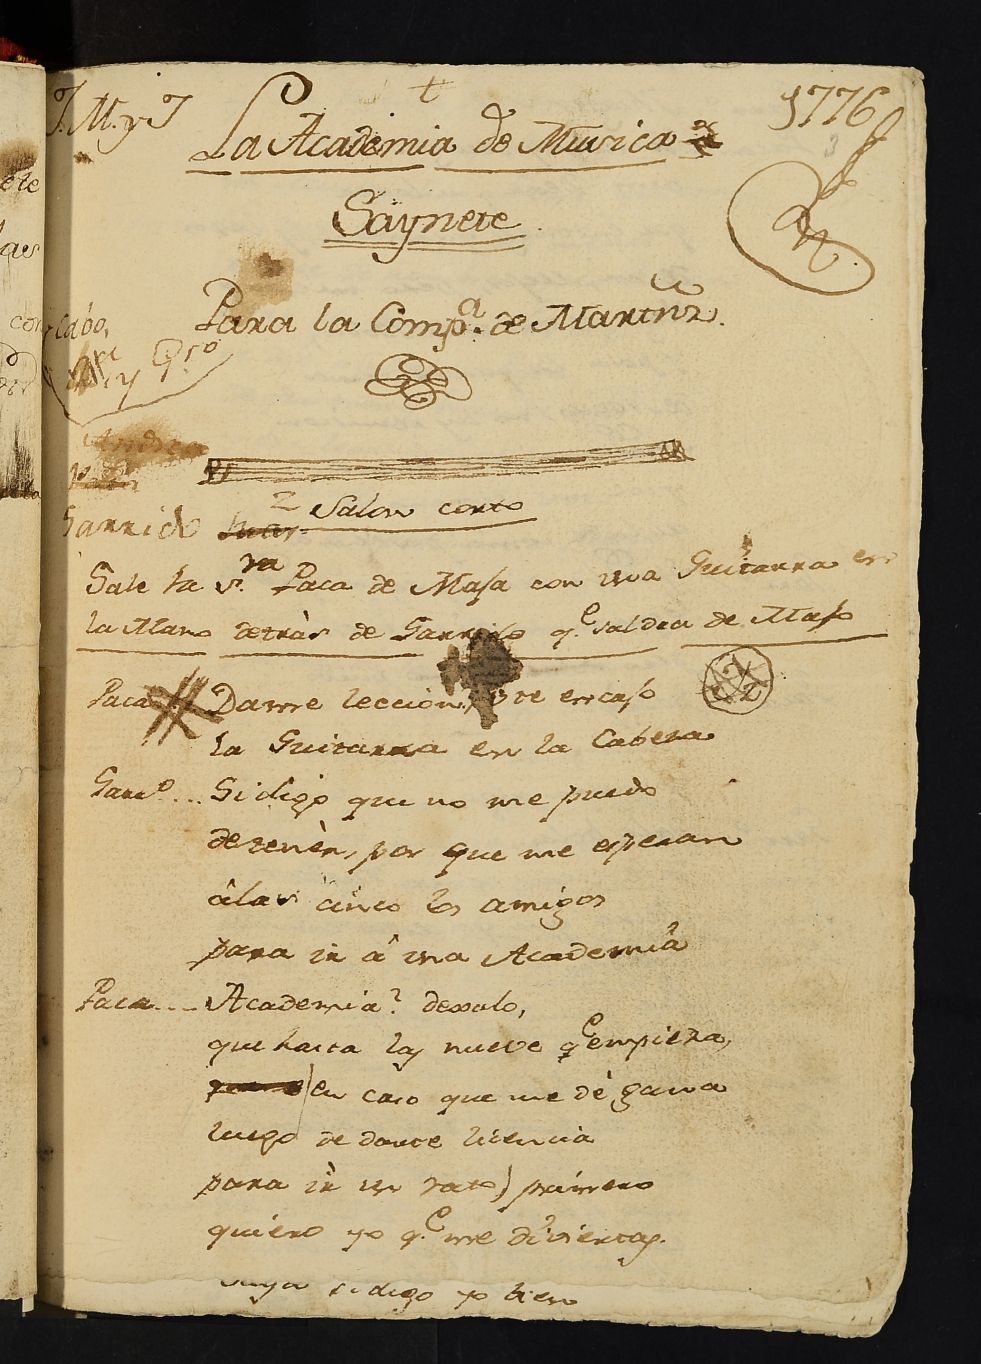 J. M. y J
t
1776
La Academia de Musica
Saynete
Para la Comp.a de Martnz.
Garrido
2 Salon corto
Sale la S.ra Paca de Maja con una Guitarra en
la Mano detràs de Garrido q.e saldra de Majo
Paca Darme leccion, o te encajo
la Guitarra en la Cabeza
Garrdo... Si digo que no me puedo
detenèr, por que me esperan
â las cinco los amigos
para ir â una Academia
Paca... Academia? dexalo,
que hasta las nueve q.e empieza,
(en caso que me dè gana
luego de darte licencia
para ir un rato) primero
quiero yo q.e me diviertas.
si digo yo bien